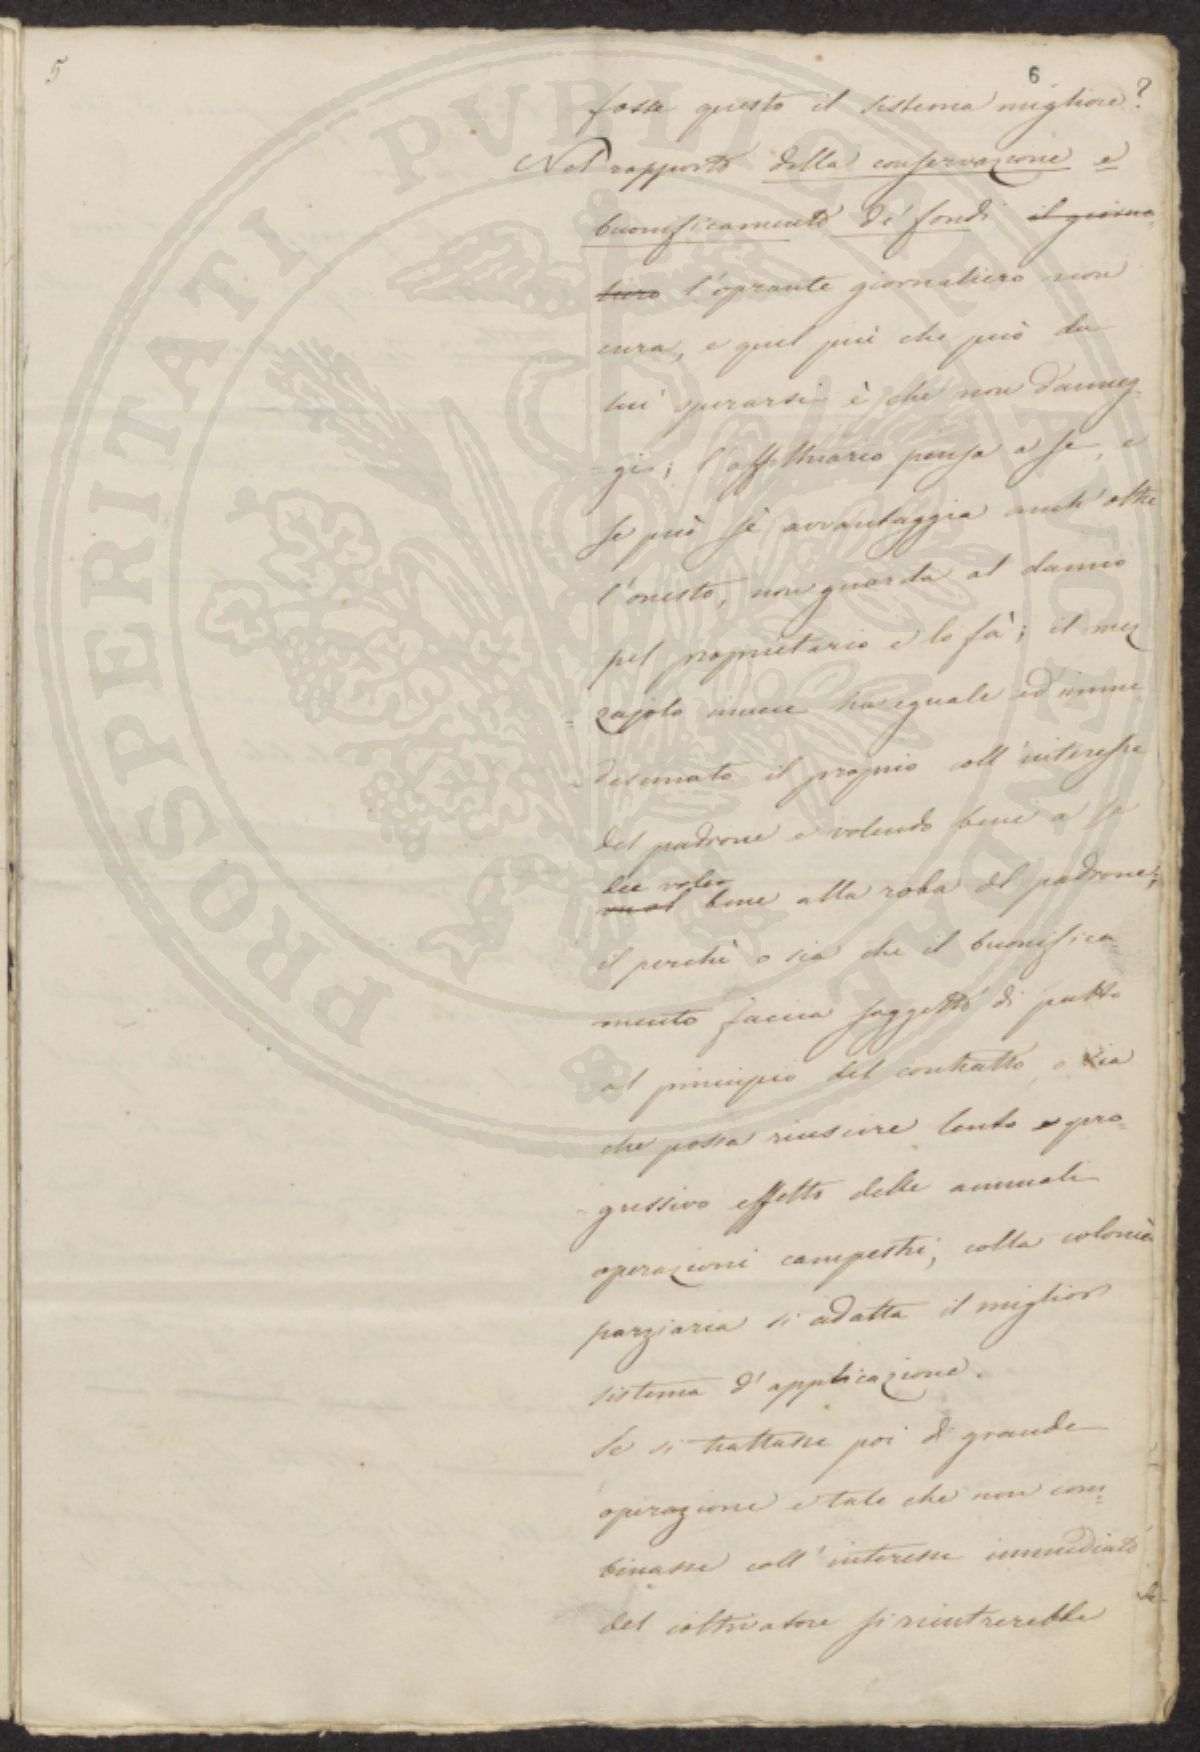 5
6
fosse questo il sistema migliore?
Nel rapporto della conservazione e
buonificamento de' fondi il giorna-
liero l'oprante giornaliero non
cura, e quel più che può da
lui sperarsi è che non danneg-
=gi; l'affittuario pensa a se, e
se può sè avvantaggia anch'oltre
l'onesto, non guarda al danno
pel proprietario e lo fà; il mez
=zajolo invece ha eguale ed imme
=desimato il proprio coll'interesse
del padrone e volendo bene a se
dee voler
vuol bene alla roba del padrone;
il perchè o sia che il buonifica-
mento faccia soggetto di patto
al principio del contratto, o sia
che possa riuscire lento e pro-
=gressivo effetto delle annuali
operazioni campestri, colla colonìa
parziaria si adatta il miglior
sistema d'applicazione.
Se si trattasse poi di grande
operazione e tale che non com=
binasse coll'interesse immediato
del coltivatore si rientrerebbe
PROSPERITATI PVBLICAE AVGENDAE